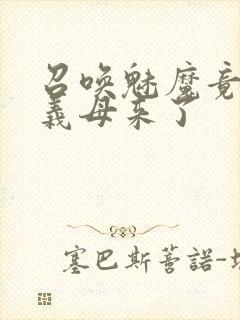 召唤魅魔竟
義母来了
塞巴斯蒈諾-